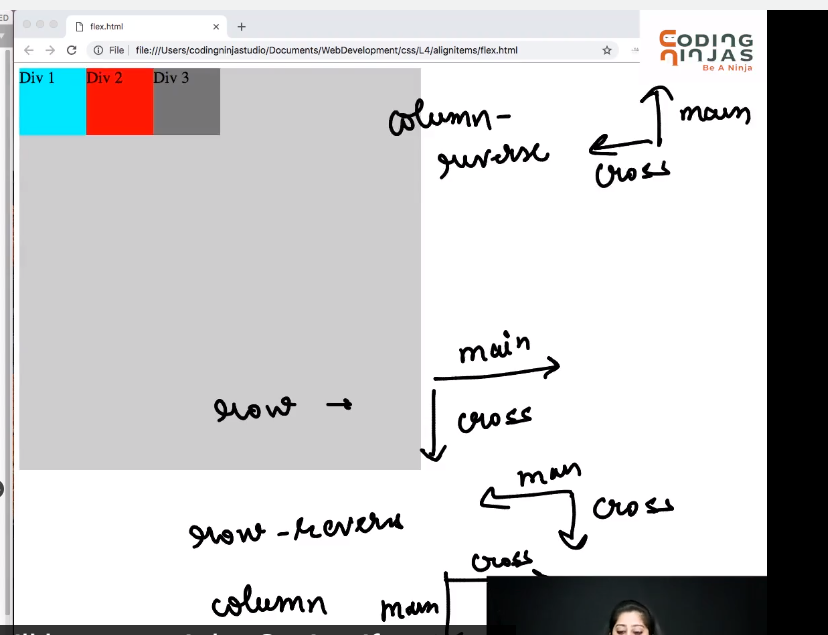 flex.html
File file:///Users/codingninjastudio/Documents/WebDevelopment/css/L4/alignitems/flex.html
CODING
NINJAS
Be A Ninja
Div 1 Div 2 Div 3
column-
reverse
main
cross
main
row →
cross
main
row-reverse
cross
cross
column
main